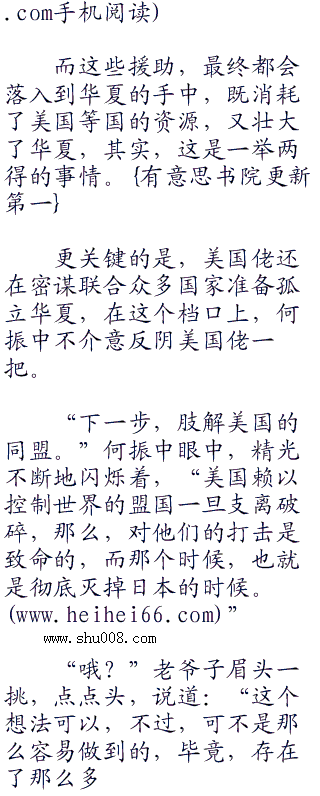 .com手机阅读)
而这些援助，最终都会
落入到华夏的手中，既消耗
了美国等国的资源，又壮大
了华夏，其实，这是一举两
得的事情。{有意思书院更新
第一}
更关键的是，美国佬还
在密谋联合众多国家准备孤
立华夏，在这个档口上，何
振中不介意反阴美国佬一
把。
“下一步，肢解美国的
同盟。”何振中眼中，精光
不断地闪烁着，“美国赖以
控制世界的盟国一旦支离破
碎，那么，对他们的打击是
致命的，而那个时候，也就
是彻底灭掉日本的时候。
(www.heihei66.com)”
www.shu008.com
“哦？”老爷子眉头一
挑，点点头，说道：“这个
想法可以，不过，可不是那
么容易做到的，毕竟，存在
了那么多